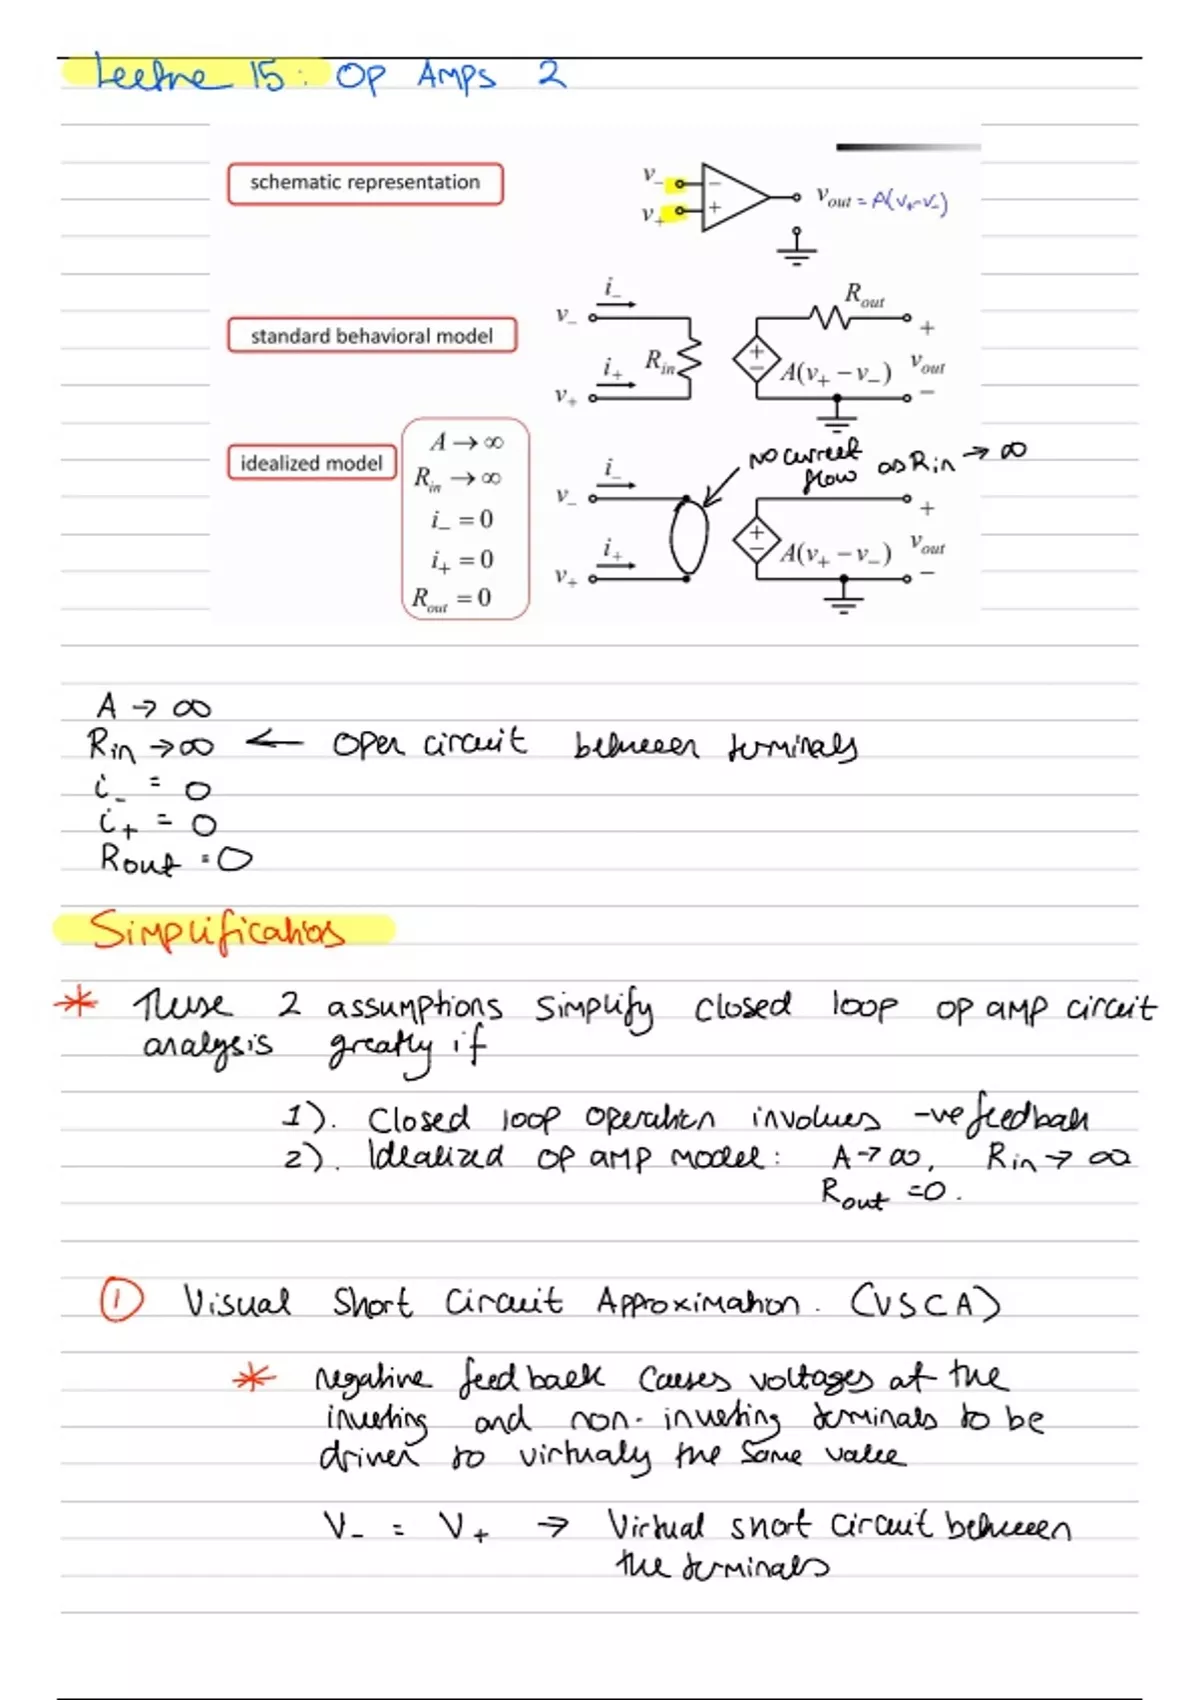 Lecture 15: Op Amps 2
schematic representation
v₋
−
v₊
+
v_out = A(v₊-v₋)
standard behavioral model
i₋
v₋
R_in
i₊
v₊
R_out
+
−
A(v₊ − v₋)
+
v_out
−
idealized model
A → ∞
R_in → ∞
i₋ = 0
i₊ = 0
R_out = 0
i₋
v₋
i₊
v₊
No current
flow as Rin → ∞
+
−
A(v₊ − v₋)
+
v_out
−
A → ∞
Rin → ∞ ← open circuit between terminals
i₋ = 0
i₊ = 0
Rout = 0
Simplifications
* These 2 assumptions simplify closed loop op amp circuit
analysis greatly if
1). Closed loop operation involves -ve feedback
2). Idealized op amp model: A→∞, Rin → ∞
Rout =0.
① Visual Short Circuit Approximation. (VSCA)
* negative feedback causes voltages at the
inverting and non-inverting terminals to be
driven to virtualy the same value
V₋ = V₊ → Virtual short circuit between
the terminals